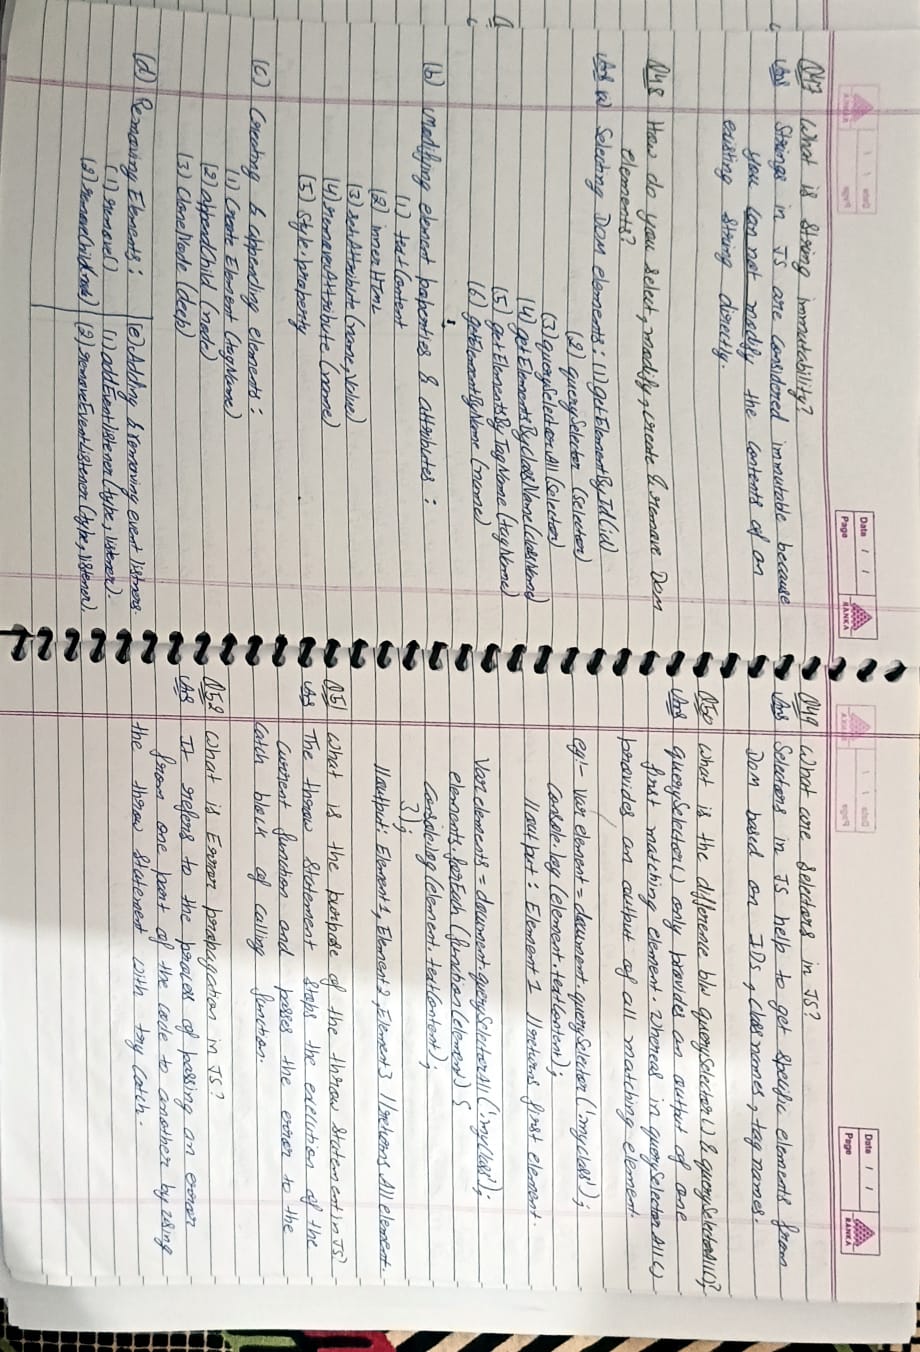 Date / /
Page
RANKA
Q47 What is string immutability?
Ans Strings in JS are considered immutable because
you can not modify the contents of an
existing string directly.
Q48 How do you select, modify, create & remove Dom
elements?
Ans (a) Selecting Dom elements: (1) getElementById (id)
(2) querySelector (selector)
(3) querySelectorAll (selector)
(4) getElementsByClassName (className)
(5) getElementsByTagName (tagName)
(6) getElementsByName (name)
(b) Modifying element properties & attributes :
(1) textContent
(2) innerHTML
(3) setAttribute (name, value)
(4) removeAttribute (name)
(5) style.property
(c) Creating & appending elements :
(1) Create Element (tagName)
(2) appendChild (node)
(3) CloneNode (deep)
(d) Removing Elements :
(1) remove()
(2) removeChild(node)
(e) Adding & removing event listners.
(1) addEventListener (type, listener).
(2) removeEventListener (type, listener).
Date / /
Page
RANKA
Q49 What are Selectors in JS?
Ans Selectors in JS help to get specific elements from
Dom based on IDs, class names, tag names.
Q50 What is the difference b/w querySelector() & querySelectorAll()?
Ans querySelector() only provides an output of one
first matching element. Whereas in querySelectorAll()
provides an output of all matching element.
eg:- Var element = document.querySelector('.myclass');
console.log (element.textContent);
//output : Element 1 //returns first element.
Var elements = document.querySelectorAll('.myclass');
elements.forEach (function (element) {
Console.log (element.textContent);
});
//output: Element 1, Element 2, Element 3 //returns All element.
Q51 What is the purpose of the throw statement in JS?
Ans The throw statement stops the execution of the
current function and passes the error to the
catch block of calling function.
Q52 What is Error propagation in JS?
Ans It refers to the process of passing an error
from one part of the code to another by using
the throw statement with try catch.